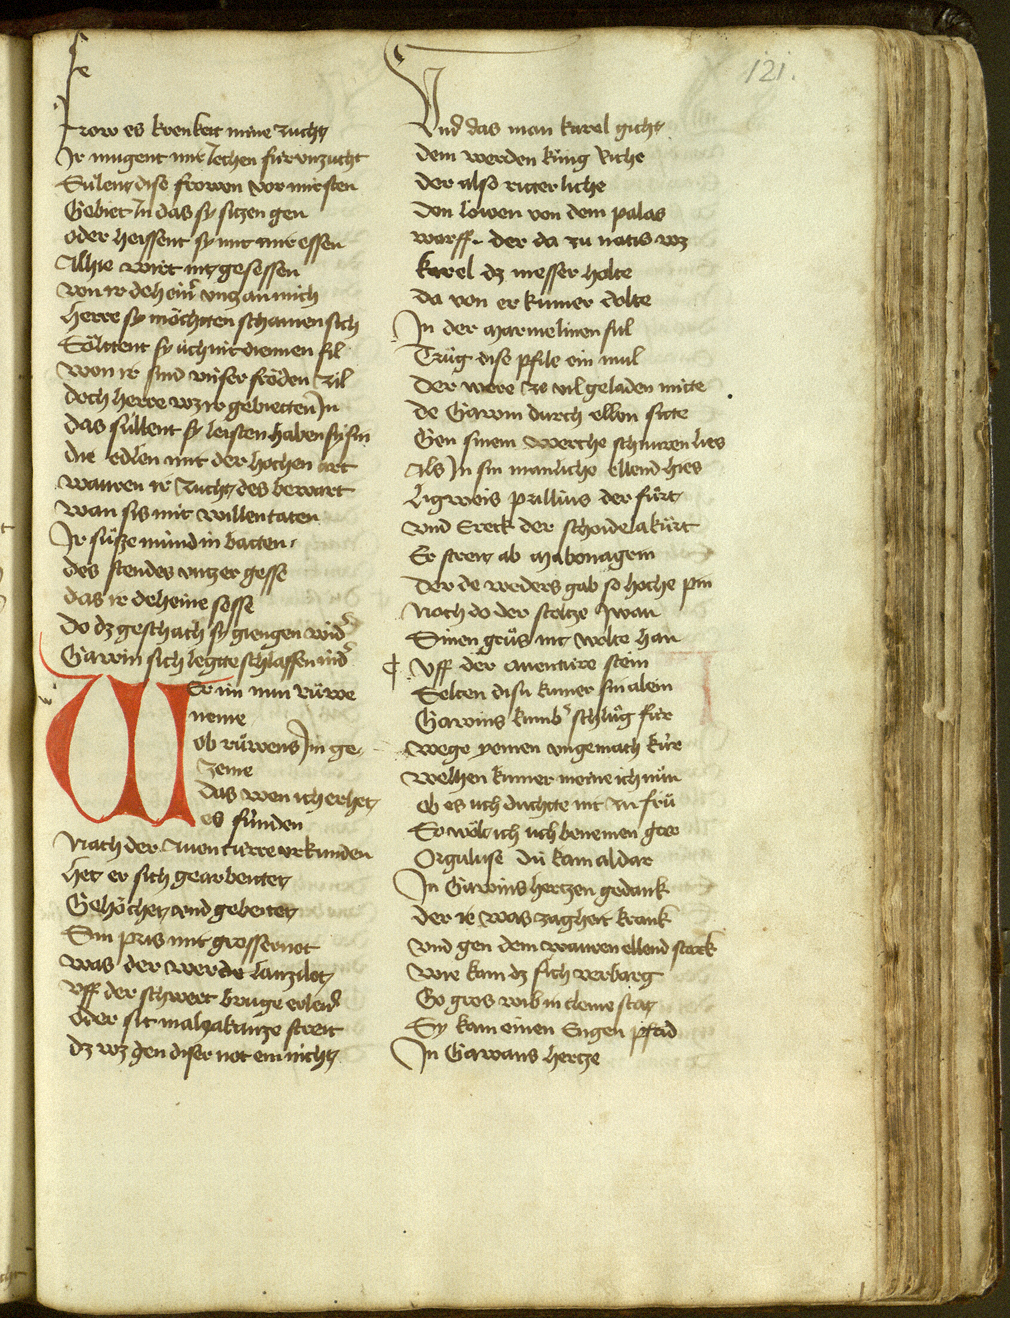 121.
Frow es krenkett mine zucht
Ir mugent mir jechen für vnzucht
Süllent dise frowen vor mir sten
Gebiet In das sy sitzen gen
oder heissent sy mit mir essen
Alhie wirt nit gesessen
von ir dehein vntz an mich
herre sy möchten schamen sich
Sölttent sy üch nit dienen fil
won ir sind vnser fröden zil
doch herre wz ir gebietten In
das süllent sy leisten haben sy sin
die edlen mit der hochen art
wauren ir zucht des bewart
wan sis mit willen taten
Ir süsze mund in batten
des stendes vntz er gesse
das ir deheine sesse
do dz geschach sy giengen wider
Gawin sich legtte schlaffen nider
Wer im nun rüwe
neme
ob rüwens In ge
zeme
das wen ich er het
es funden
Nach der Auenturre vrkunden
het er sich gearbeitet
Gehöchet vnd gebeitet
Sin pris mit grosser not
was der werde lanzilot
vff der schwert bruge erleid
oder sit maliakantze streit
dz wz gen diser not ein nicht
Vnd das man karel gicht
dem werden küng riche
der also ritterliche
den löwen von dem palas
warff der da zu natis wz
karel dz messer holte
da von er kumer dolte
In der marmelinen sul
Trüg dise pfile ein mul
Der were ze vil geladen mitte
de Gawin durch ellen sitte
Gen sinem werche schnuren lies
Als In sin manliche ellend hies
ligweis prillius der fürt
vnd Ereck der schoidelakürt
Er streit ab mabonagrin
Der de weders gab so hoche pin
Noch do der stoltze Iwan
Sinen gus nit wolte han
Vff der auenture stein
Solten disu kumer sin alein
Gawins kumber schlüg für
wege yemen vngemach kure
welhen kumer meine ich nun
ob es üch duchtte nit zu fru
So wölt ich üch benemen gar
Orguluse dü kam aldar
In Gawins hertzen gedank
der ie was zagheit krank
vnd gen dem wauren ellend starck
wie kam dz sich verbarg
So gros wib in cleine stat
Sy kam einen Engen pfad
In Gawans hertze